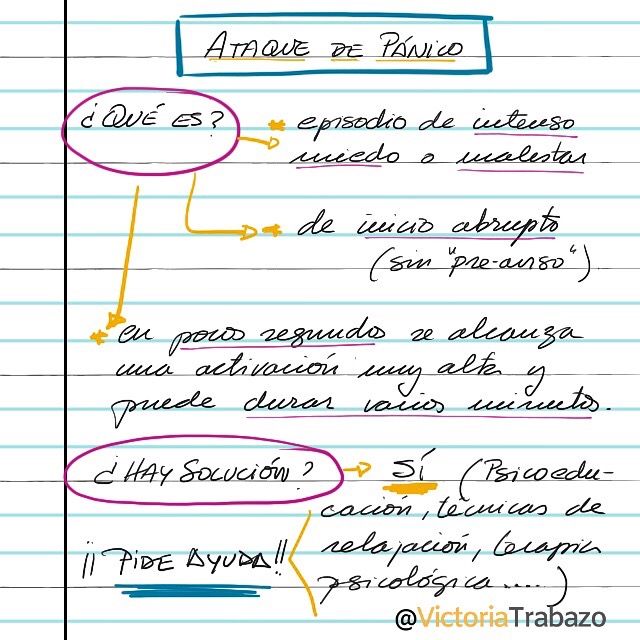 ATAQUE DE PÁNICO
¿QUÉ ES?
* episodio de intenso
miedo o malestar
* de inicio abrupto
(sin "pre-aviso")
* en pocos segundos se alcanza
una activación muy alta y
puede durar varios minutos.
¿HAY SOLUCIÓN?
SÍ (Psicoedu-
cación, técnicas de
relajación, terapia
psicológica....)
¡¡PIDE AYUDA!!
@VictoriaTrabazo